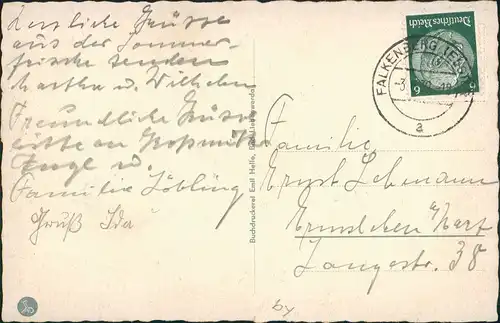 Herzliche Grüsse
aus der Sommer-
frische senden
Martha u. Wilhelm
Freundliche Grüsse
bitte an Großmutter
Enge u.
Familie Löbling
Gruß Ida
Buchdruckerei Emil Helfe, Bad Liebenwerda
Deutsches Reich
6 6
FALKENBERG
a
Familie
Ernst Lehmann
Ermsleben a/Harz
Langestr. 38